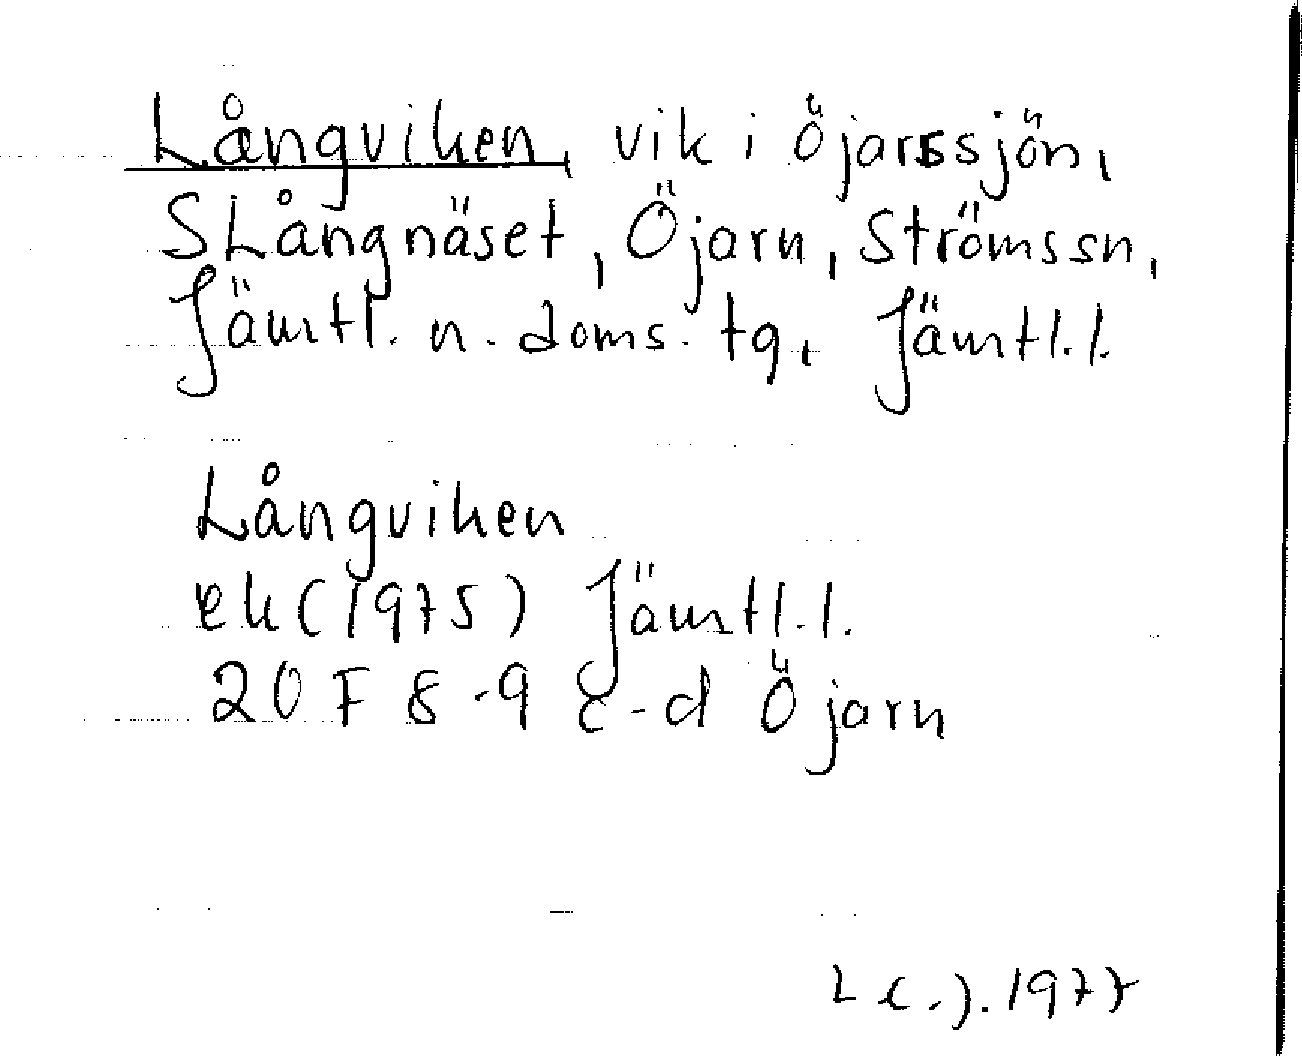 Långviken, vik i Öjarssjön,
S Långnäset, Öjarn, Strömssn,
Jämtl. n. doms. tg, Jämtl. l.
Långviken
ek (1975) Jämtl. l.
20 F 8-9 c-d Öjarn
1977